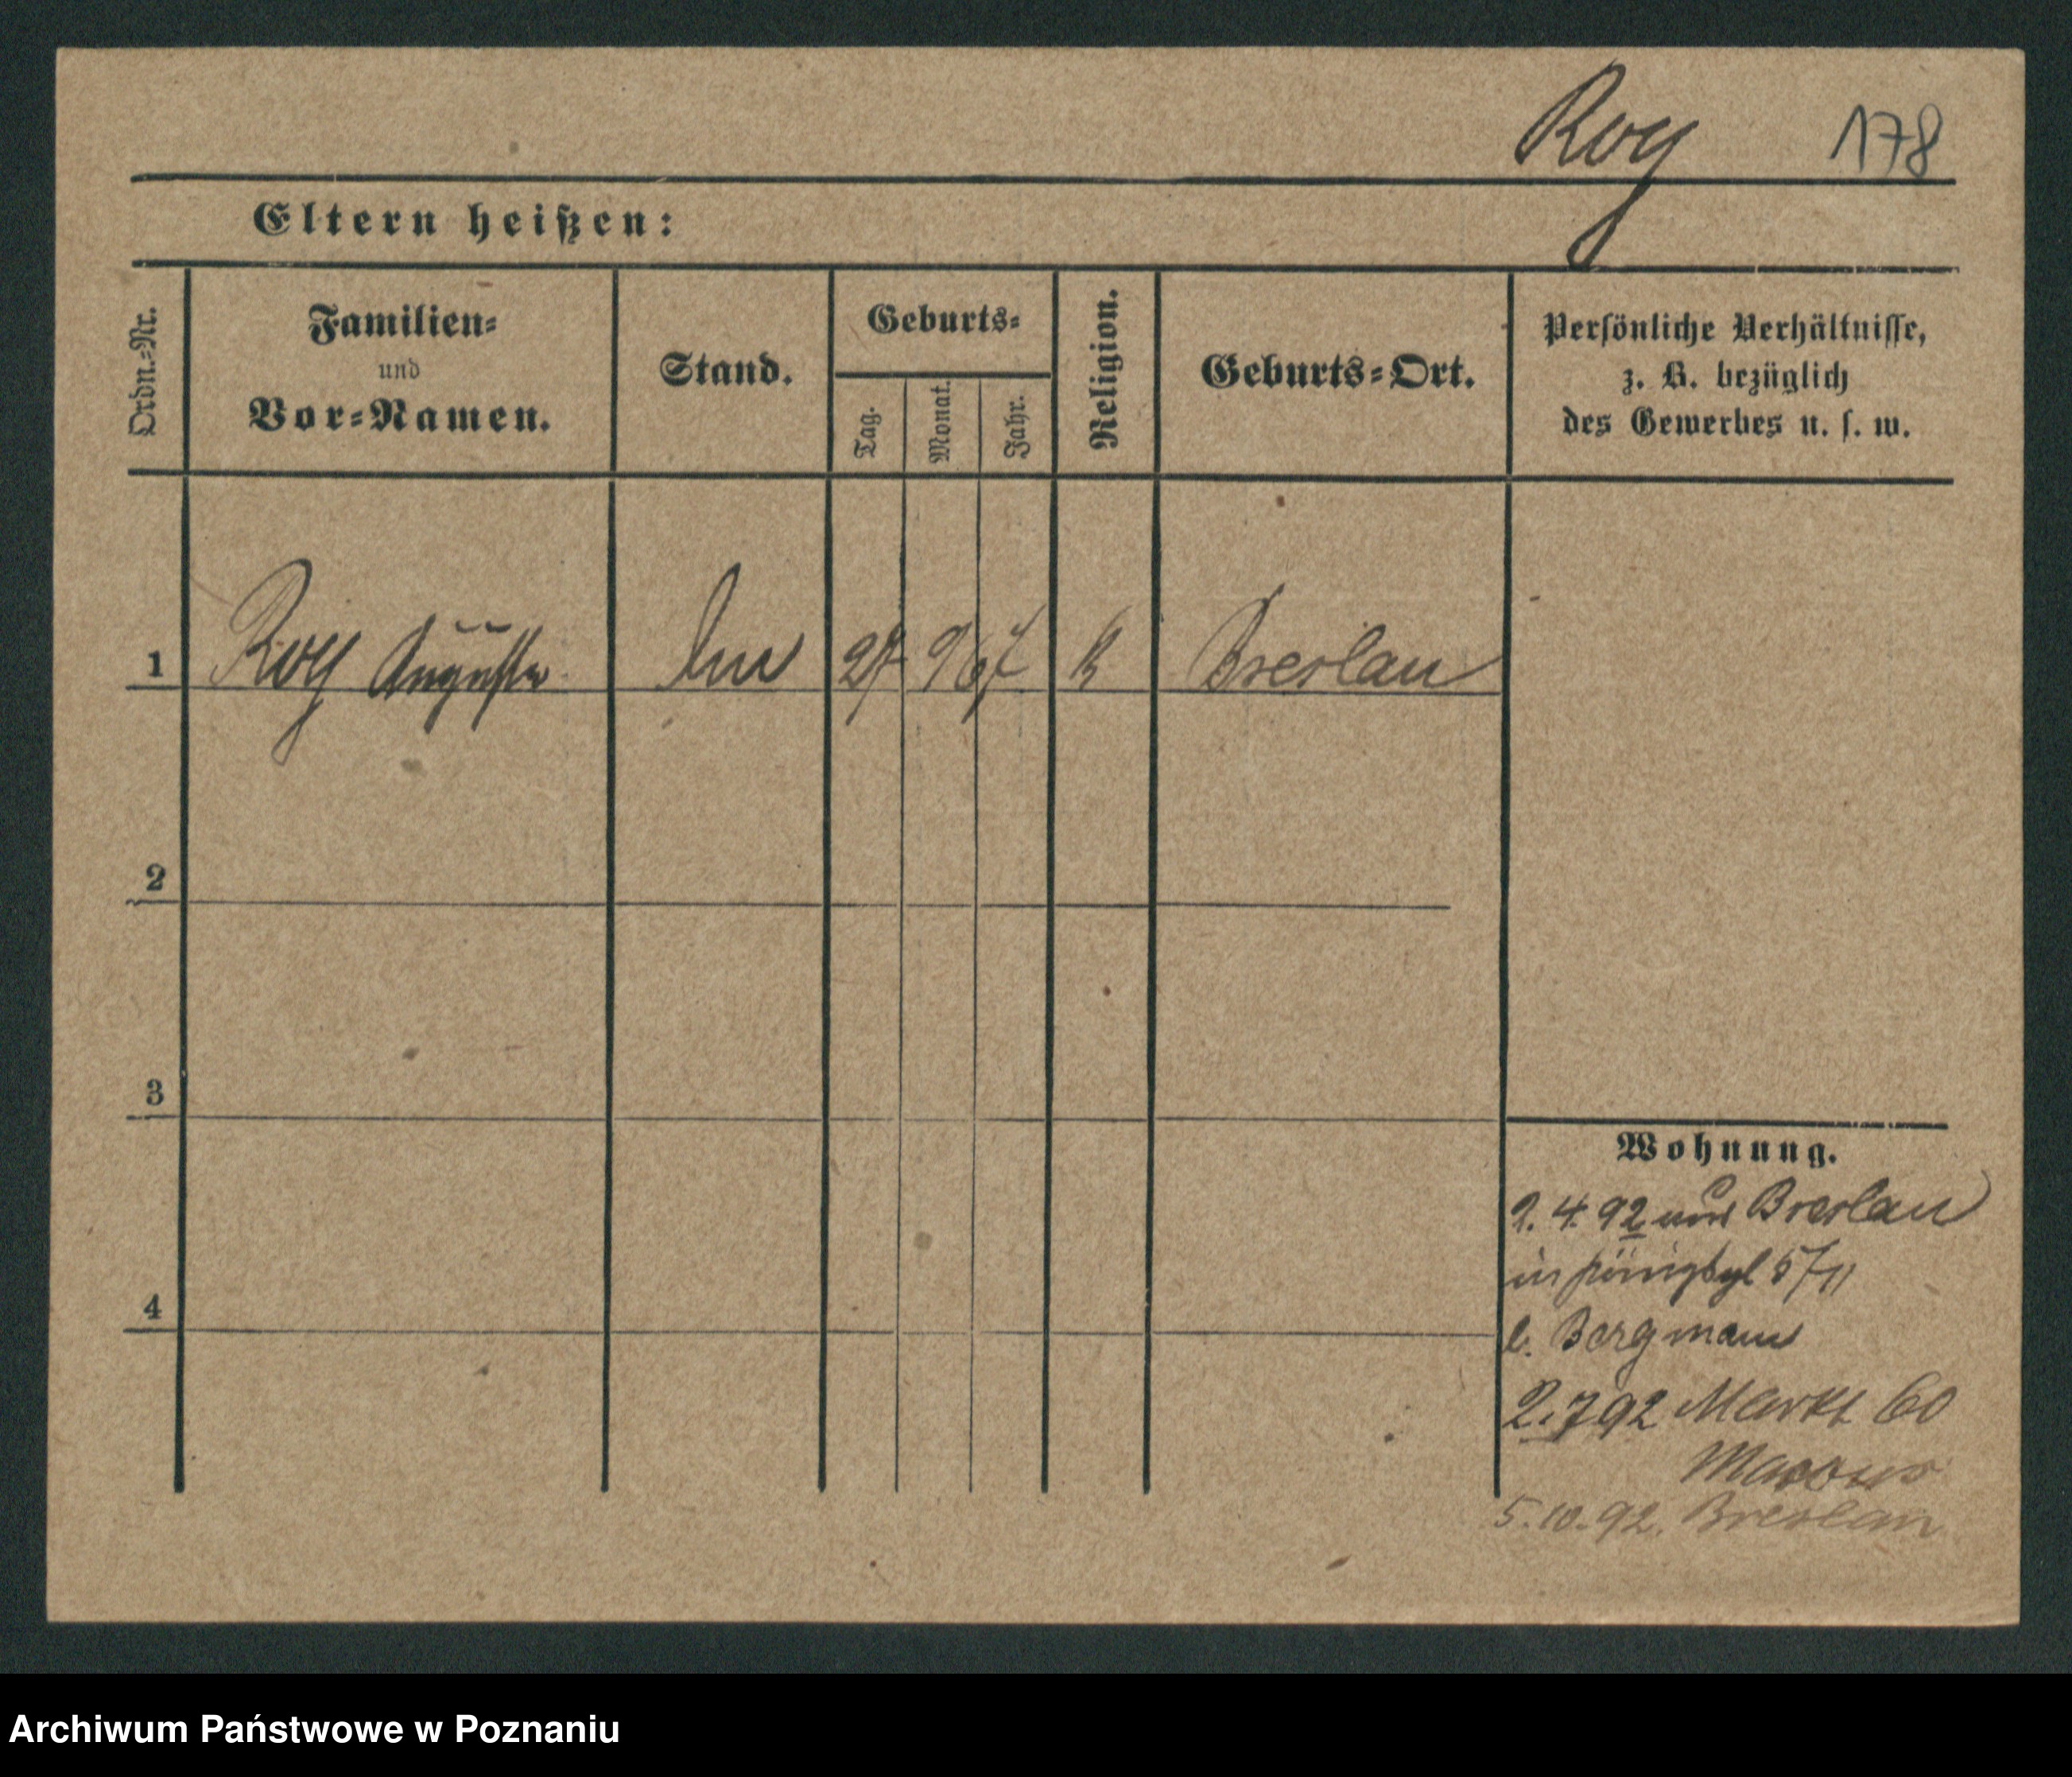 Roy 178
Eltern heißen:
Ordn.-Nr.
Familien-
und
Vor-Namen.
Stand.
Geburts-
Tag.
Monat.
Jahr.
Religion.
Geburts-Ort.
Persönliche Verhältnisse,
z. B. bezüglich
des Gewerbes u. s. w.
1 Roy Auguste 27 9 67 K Breslau
2
3
4
Wohnung.
2. 4. 92 von Breslau
in 5/II
b. Bergmann
2.7 92 Markt 60
Marcus
5.10.92. Breslau
Archiwum Państwowe w Poznaniu